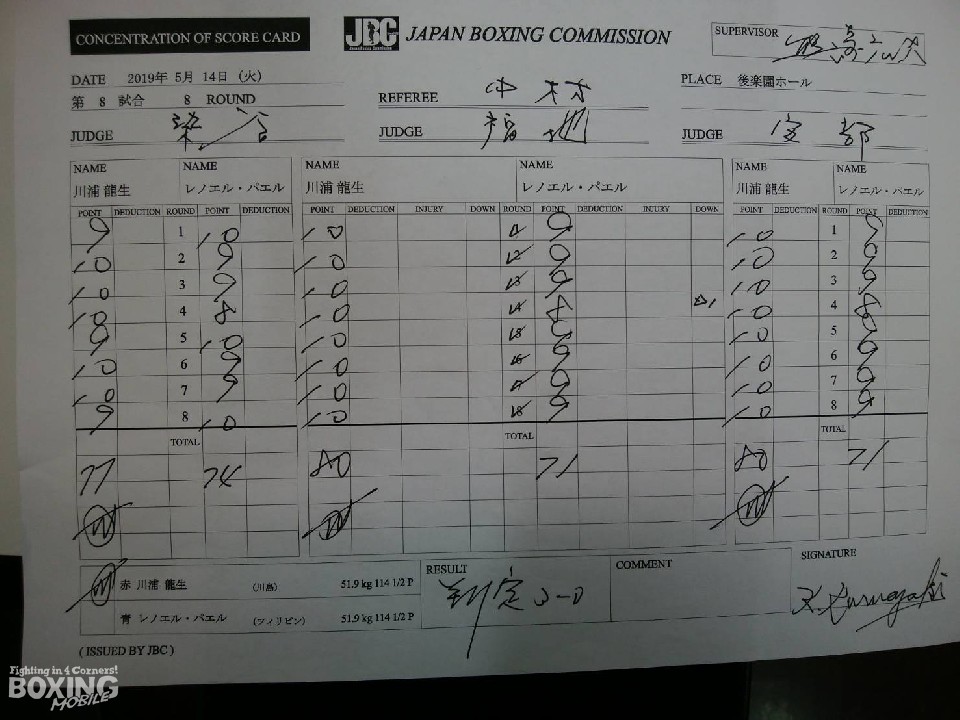 CONCENTRATION OF SCORE CARD JBC JAPAN BOXING COMMISSION SUPERVISOR
DATE 2019年 5月 14日 (火) PLACE 後楽園ホール
第 8 試合 8 ROUND REFEREE 中村
JUDGE 染谷 JUDGE 福地 JUDGE
NAME NAME NAME NAME NAME NAME
川浦 龍生 レノエル・パエル 川浦 龍生 レノエル・パエル 川浦 龍生 レノエル・パエル
POINT DEDUCTION ROUND POINT DEDUCTION POINT DEDUCTION INJURY DOWN ROUND POINT DEDUCTION INJURY DOWN POINT DEDUCTION ROUND POINT DEDUCTION
9 1 10 10 9 10 1 9
10 2 9 10 9 10 2 9
10 3 9 10 9 10 3 9
10 4 8 10 8 10 4 8
9 5 10 10 9 10 5 9
10 6 9 10 9 10 6 9
10 7 9 10 9 10 7 9
9 8 10 10 9 10 8 9
TOTAL TOTAL TOTAL
77 74 80 71 80 71
W W W
W 赤 川浦 龍生 (川島) 51.9 kg 114 1/2 P RESULT 判定 3-0 COMMENT SIGNATURE
青 レノエル・パエル (フィリピン) 51.9 kg 114 1/2 P
( ISSUED BY JBC )
Fighting in 4 Corners!
BOXING
MOBILE